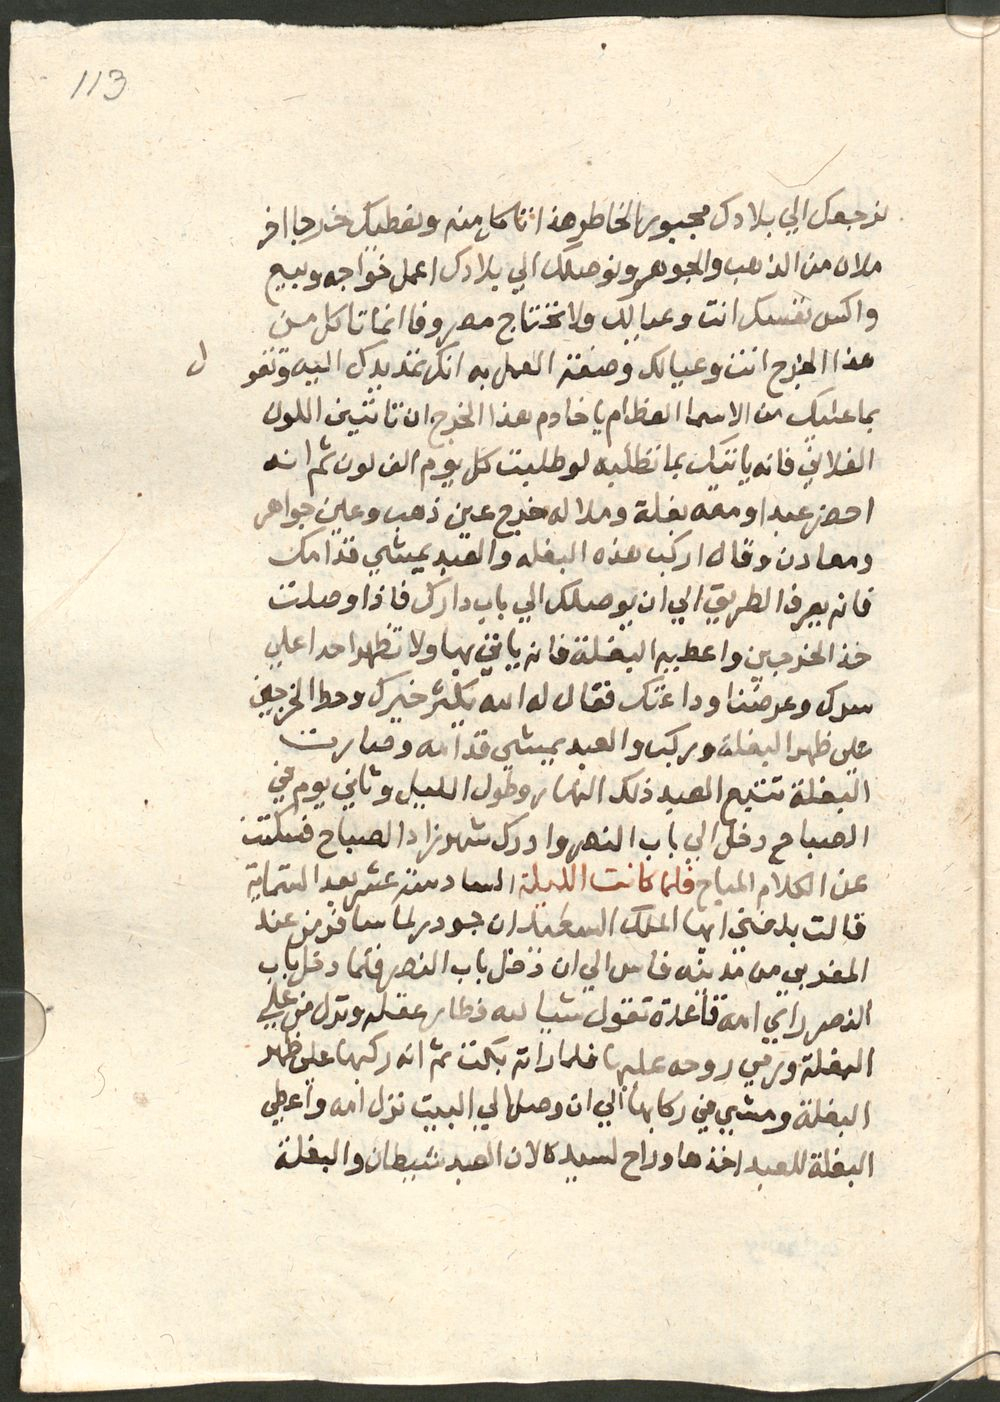 113
نرجعك الي بلادك مجبور الخاطر هذا تاكل منه ونعطيك خرجا اخر
ملان من الذهب والجوهر ونوصلك الي بلادك اعمل خواجه وبيع
واكس نفسك انت وعيالك ولا تحتتاج مصروفا انما تاكل من
هذا الخرج انت وعيالك وصفة العمل به انك تمد يدك اليه وتقول
بما عليك من الاسما العظام يا خادم هذا الخرج ان تاتيني اللون
الفلاني فانه ياتيك بما تطلبه لو طلبت كل يوم الف لون ثم انه
احضر عبدا ومعه بغلة وملا له خرج عين ذهب وعين جواهر
ومعادن وقال اركب هذه البغله والعبد يمشي قدامك
فانه يعرف الطريق الي ان يوصلك الي باب دارك فاذا وصلت
خذ الخرجين واعطيه البغلة فانه ياتي بها ولا تظهر احدا علي
سرك وعرضنا وداعتك فقال له الله يكثر خيرك وحط الخرجين
علي ظهر البغلة وركب والعبد يمشي قدامه وصارت
البغلة تتبع العبد ذلك النهار وطول الليل وثاني يوم في
الصباح دخل الي باب النصر وادرك شهرزاد الصباح فسكتت
عن الكلام المباح فلما كانت الليلة السادسة عشر بعد الستماية
قالت بلغني ايها الملك السعيد ان جودر لما سافر من عند
المغربي من مدينه فاس الي ان دخل باب النصر فلما دخل باب
النصر راي امه قاعدة تقول شيا لله فطار عقله ونزل من علي
البغلة ورمي روحه عليها فلما راته بكت ثم انه ركبها علي ظهر
البغلة ومشي في ركابها الي ان وصل الي البيت نزل امه واعطي
البغلة للعبد اخذها وراح لسيده لان العبد شيطان والبغلة